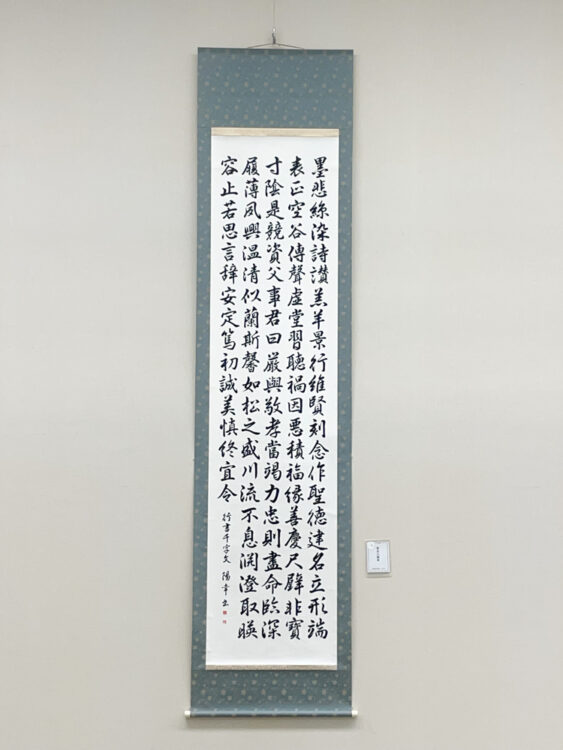 墨悲絲染詩讃羔羊景行維賢刻念作聖德建名立形端
表正空谷傳聲虚堂習聽禍因悪積福縁善慶尺璧非寶
寸陰是競資父事君曰嚴與敬孝當竭力忠則盡命臨深
履薄夙興温清似蘭斯馨如松之盛川流不息渕澄取暎
容止若思言辞安定篤初誠美慎終宜令
行書千字文 陽幸書